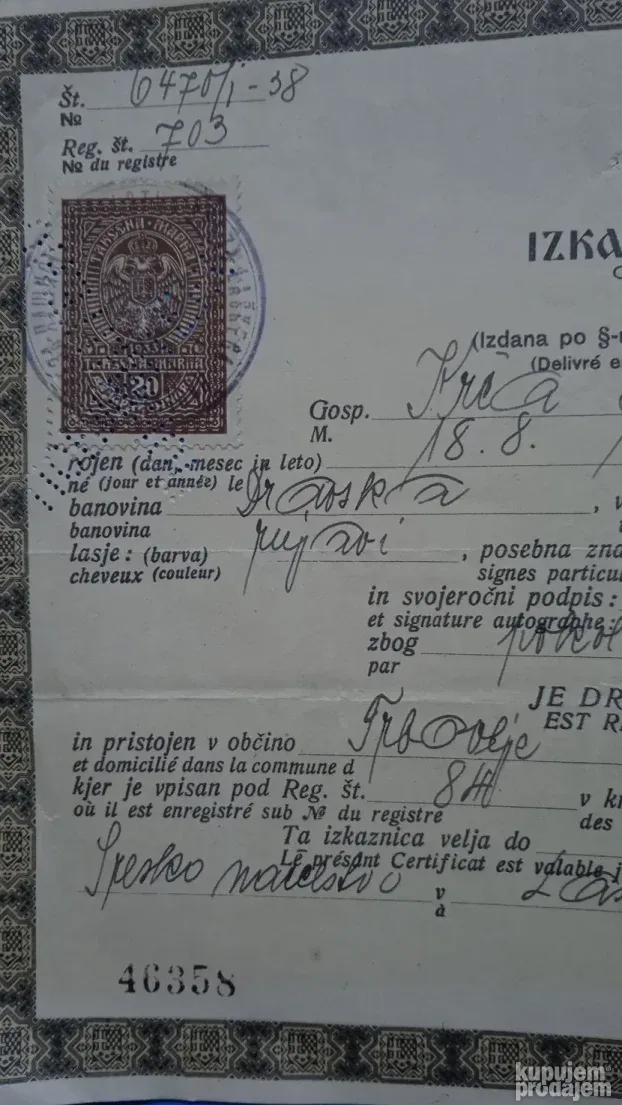 Št. 6470/I-38
No
Reg. št. 703
No du registre
20
IZKA
(Izdana po §-u
(Delivré e
Gosp. Krča
M.
18. 8.
rojen (dan, mesec in leto)
né (jour et année) le
banovina Dravska
banovina
lasje: (barva) rujavi, posebna zna
cheveux (couleur) signes particul
in svojeročni podpis:
et signature autographe:
zbog
par
JE DR
EST R
in pristojen v občino Trbovlje
et domicilié dans la commune d
kjer je vpisan pod Reg. št. 84 v k
où il est enregistré sub No du registre des
Ta izkaznica velja do
Le présent Certificat est valable j
Sresko načelstvo v
à
46358
kupujem
prodajem